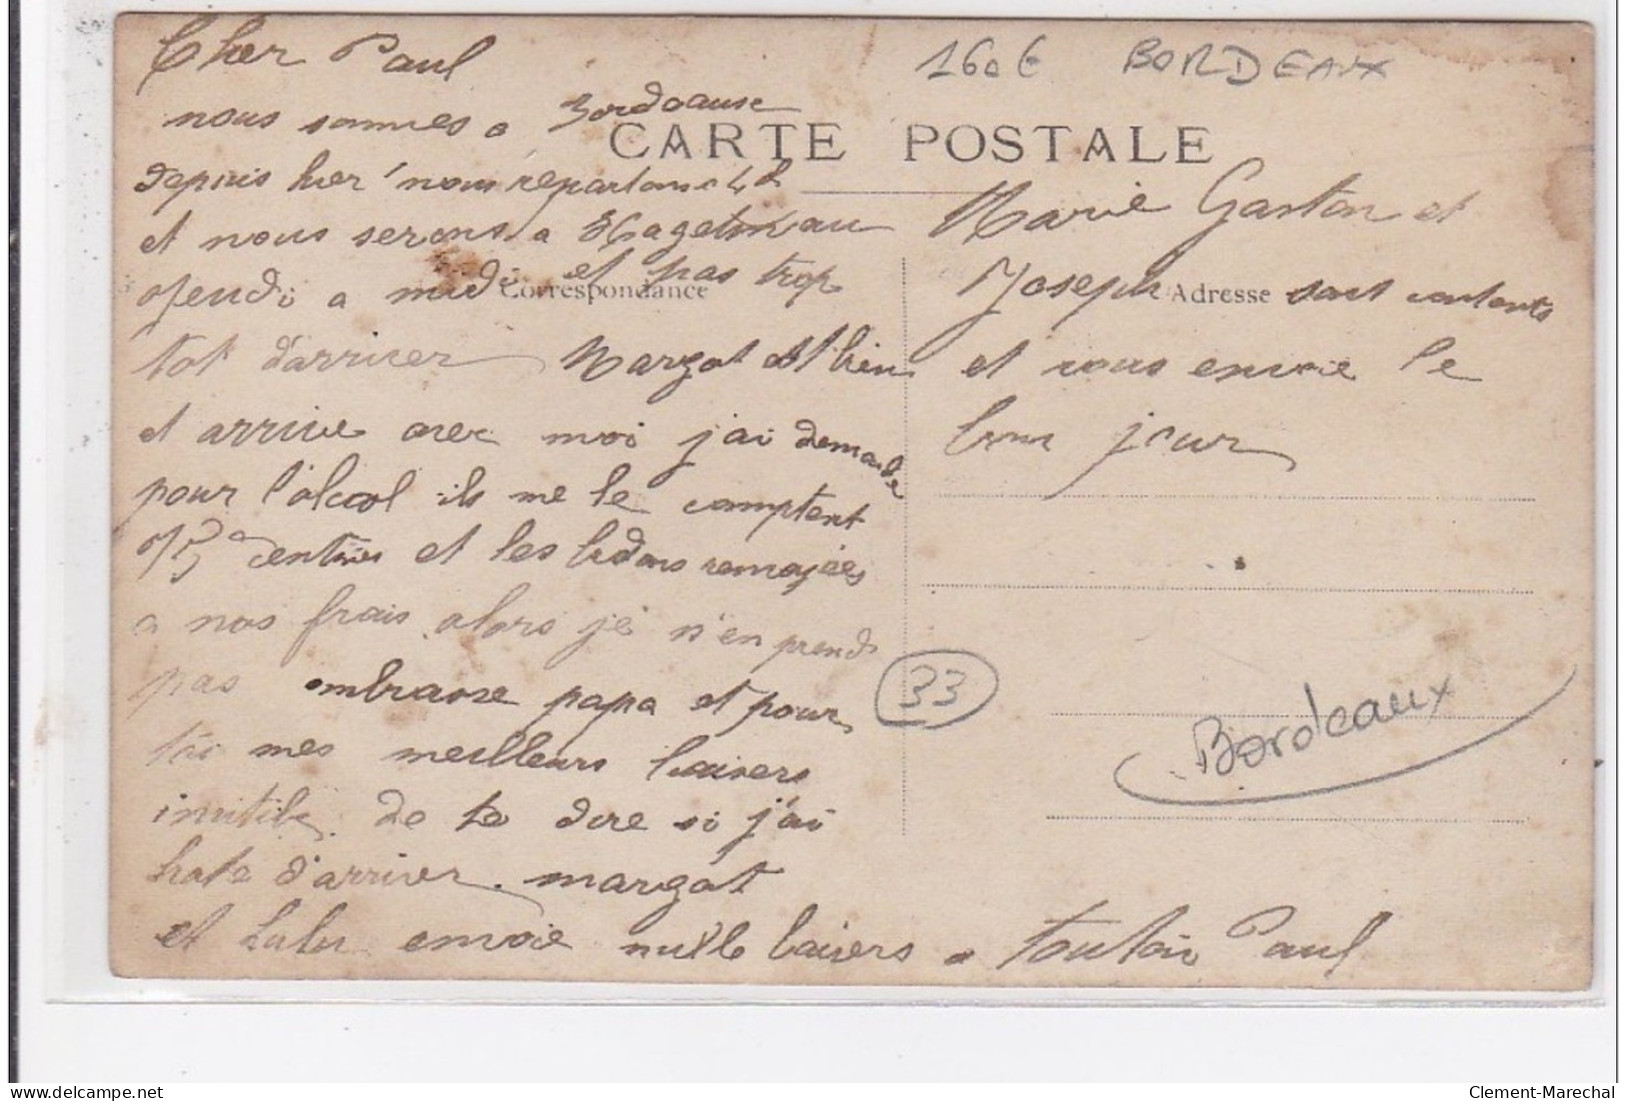 Cher Paul
nous sommes a Bordeause
depuis hier nous repartons a 4 h
et nous serons a Hagetmau
Jeudi a midi et pas trop
tot d'arriver Margot et bien
et arrive avec moi j'ai demande
pour l'alcool ils me le comptent
75 centimes et les bidons
a nos frais alors je n'en prends
pas embrasse papa et pour
toi mes meilleurs baisers
inutile de te dire si j'ai
hate d'arriver. margot
et Lulu envoie mille baisers a tonton Paul
160€ BORDEAUX
CARTE POSTALE
Correspondance
Adresse
Marie Gaston et
Joseph sont contents
et vous envoie le
bon jour
33
Bordeaux
Clement-Marechal